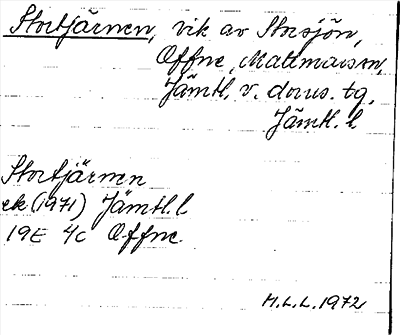 Stortjärnen, vik av Storsjön,
Offne, Mattmarssn,
Jämtl. v. doms. tg,
Jämtl. l.
Stortjärnen
ek (1971) Jämtl. l
19E 4c Offne
H.L.L. 1972